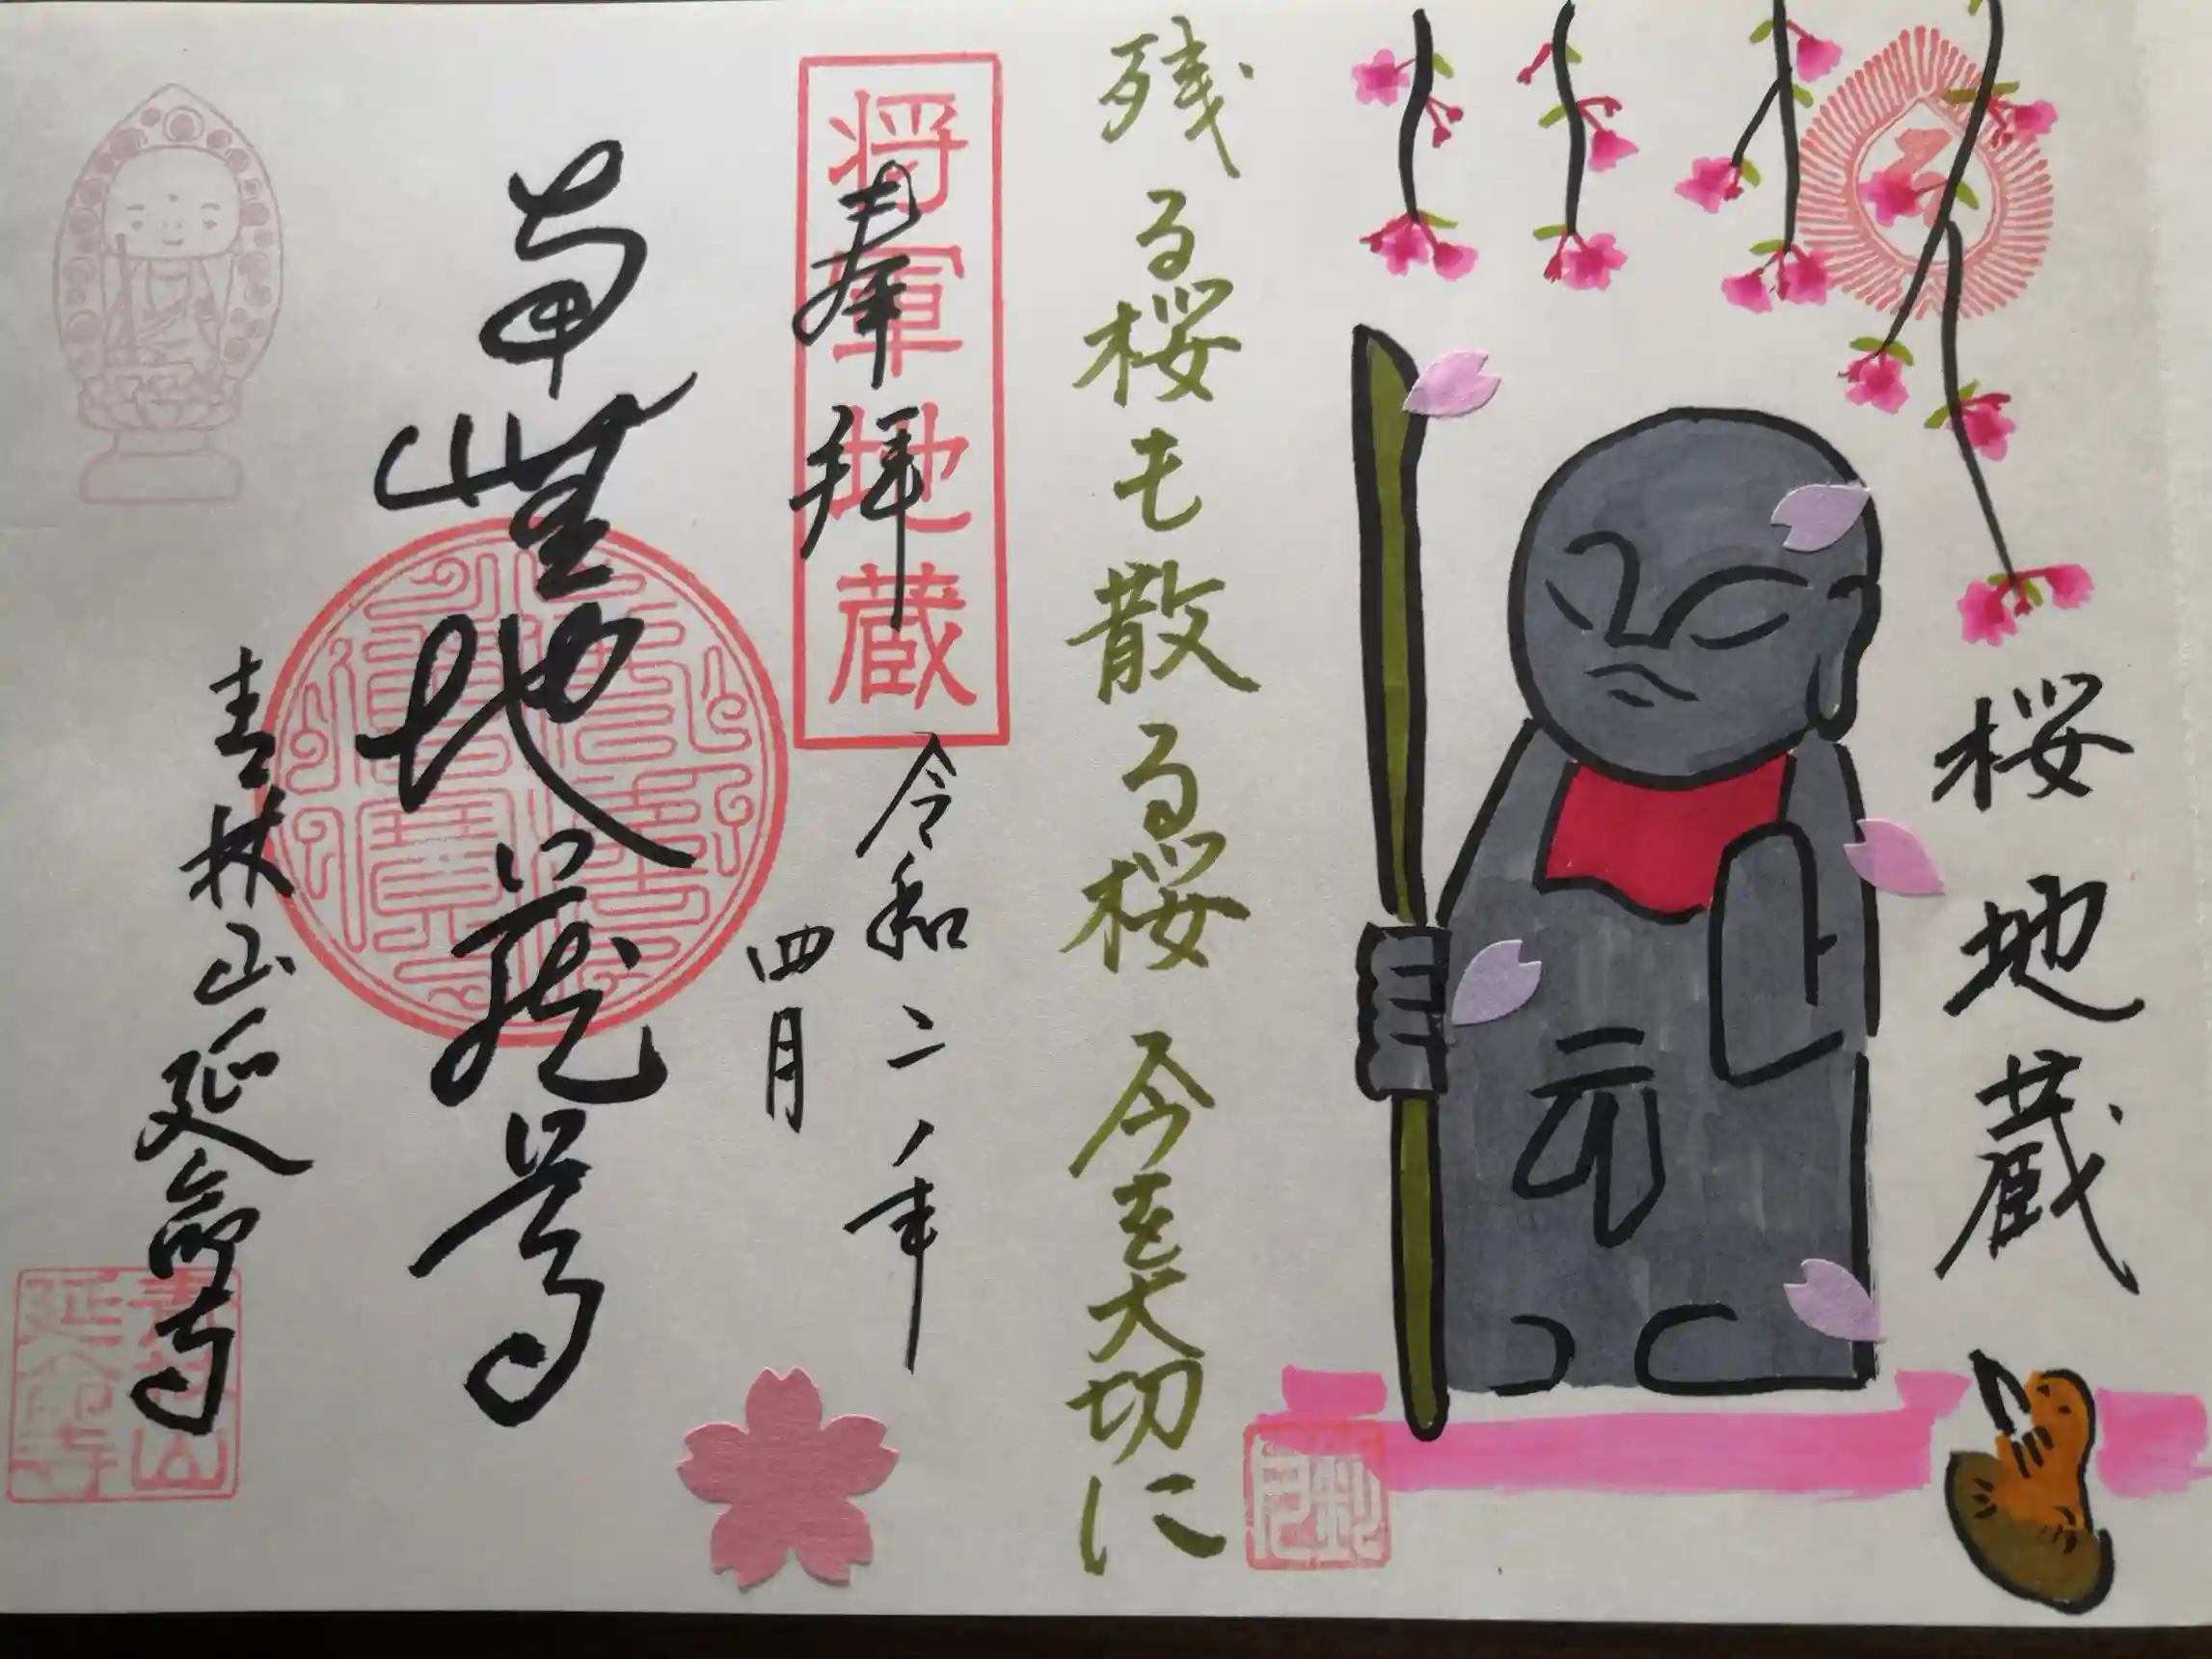 桜地蔵
残る桜も散る桜 今を大切に
将軍地蔵
奉拝
令和二年
四月
青林山延命寺
青林山
延命寺